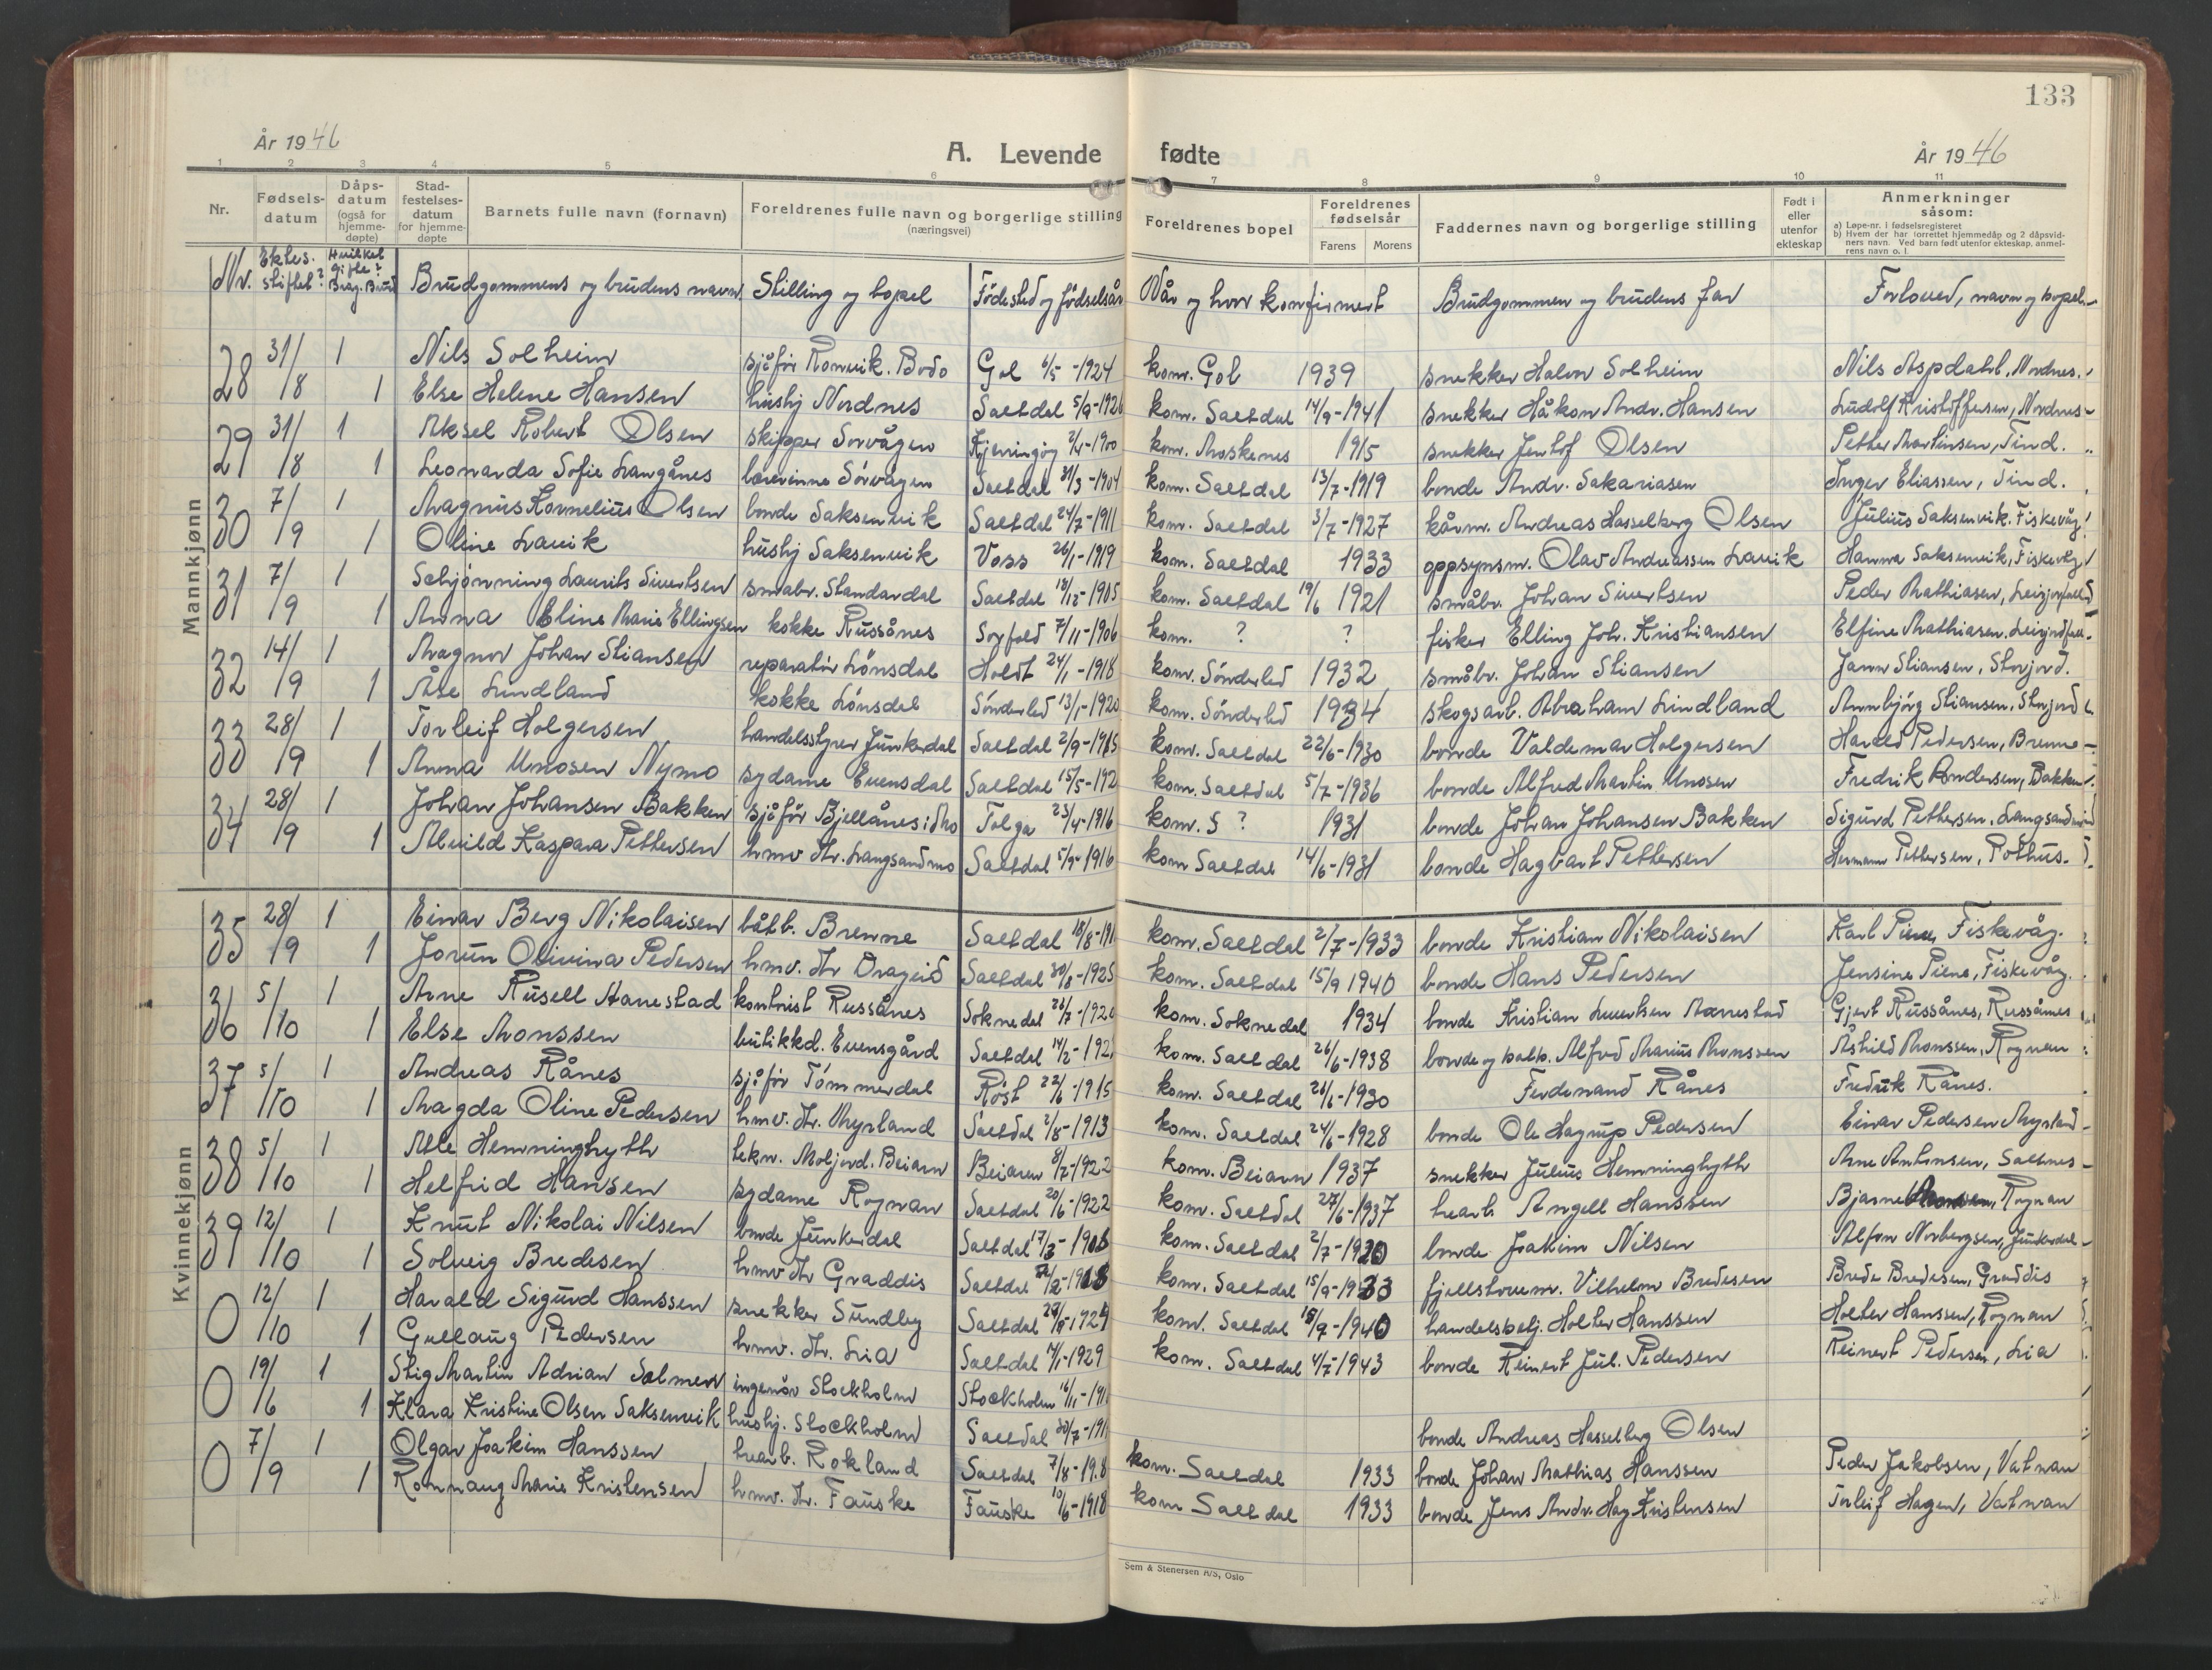 133
År 1946
A. Levende fødte
År 1946
1 2 3 4 5 6 7 8 9 10 11
Nr. Fødsels-datum Dåps-datum (også for hjemme-døpte) Stad-festelses-datum for hjemme-døpte Barnets fulle navn (fornavn) Foreldrenes fulle navn og borgerlige stilling (næringsvei) Foreldrenes bopel Foreldrenes fødselsår Farens Morens Faddernes navn og borgerlige stilling Født i eller utenfor ekteskap Anmerkninger såsom: a) Løpe-nr. i fødselsregisteret b) Hvem der har forrettet hjemmedåp og 2 dåpsvid-ners navn. Ved barn født utenfor ekteskap, anmel-rens navn o. l.
Nr. Ektes. stiftet? Hvilket gifte? Brudg. Brud Brudgommens og brudens navn Stilling og bopel Fødested og fødselsår Når og hvor konfirmert Brudgommen og brudens far Forlover, navn og bopel
Mannkjønn
28 31/8 1 Nils Solheim sjåfør Rønvik. Bodø Gol 6/5-1924 konv. Gol 1939 snekker Halvor Solheim Nils Aspdahl, Nordnes.
1 Else Helene Hansen hushj Nordnes Saltdal 5/9-1926 konv. Saltdal 14/9-1941 snekker Håkon Andr. Hansen Ludolf Kristoffersen, Nordnes
29 31/8 1 Aksel Robert Olsen skipper Sørvågen Kjerringøy 2/4-1900 konv. Moskenes 1915 snekker Jentof Olsen Petter Martinsen, Tind.
1 Leonarda Sofie Langånes lærerinne Sørvågen Saltdal 31/3-1904 konv. Saltdal 13/7-1919 bonde Andr. Sakariasen Inger Eliassen, Tind.
30 7/9 1 Magnus Kornelius Olsen bonde Saksenvik Saltdal 24/7-1911 konv. Saltdal 3/7-1927 kårm. Andreas Hasselberg Olsen Julius Saksenvik. Fiskevåg
1 Oline Lavik hushj Saksenvik Voss 26/1-1919 konv. Saltdal 1933 oppsynsm. Olav Andreassen Lavik Hanna Saksenvik, Fiskevåg
31 7/9 1 Schjønning Laurits Sivertsen småbr. Standardal Saltdal 18/12-1905 konv. Saltdal 19/6 1921 småbr. Johan Sivertsen Peder Mathiasen,
1 Anna Eline Marie Ellingsen kokke Russånes Sørfold 7/11-1906 konv. ? ? fisker Elling Joh. Kristiansen Elfine Mathiasen,
32 14/9 1 Magnor Johan Stiansen reparatør Lønsdal Holdt 24/1-1918 konv. Sønderled 1932 småbr. Johan Stiansen Stiansen, Storjord.
1 Åse Lindland kokke Lønsdal Sønderled 13/1-1920 konv. Sønderled 1934 skogsarb. Abraham Lindland Annbjørg Stiansen, Storjord
33 28/9 1 Torleif Holgersen handelsstyrer Junkerdal Saltdal 2/9-1915 konv. Saltdal 22/6-1930 bonde Valdemar Holgersen Harald Pedersen, Brenne
1 Anna Unosen Nymo sydame Evensdal Saltdal 15/5-192 konv. Saltdal 5/7-1936 bonde Alfred Martin Unosen Fredrik Andersen, Bakken
34 28/9 1 Johan Johansen Bakken sjåfør Bjellånes i Mo Tolga 23/4-1916 konv. S ? 1931 bonde Johan Johansen Bakken Sigurd Pettersen, Langsandmo
1 Alvild Kaspara Pettersen hmv. dtr. Langsandmo Saltdal 5/9-1916 konv Saltdal 14/6-1931 bonde Hagbart Pettersen Hermann Pettersen, Pothus.
Kvinnekjønn
35 28/9 1 Einar Berg Nikolaisen båtb. Brenne Saltdal 18/8-191 konv. Saltdal 2/7-1933 bonde Kristian Nikolaisen Karl Piene, Fiskevåg.
1 Jorun Olivina Pedersen hmv. dtr Drageid Saltdal 30/8-1925 konv. Saltdal 15/9 1940 bonde Hans Pedersen Jensine Piene, Fiskevåg.
36 5/10 1 Arne Rusell Hanestad kontorist Russånes Soknedal 28/7-1920 konv. Soknedal 1934 bonde Kristian Hanestad Gjert Russånes, Russånes
1 Else Monssen butikkd. Evensgård Saltdal 14/2-192 konv. Saltdal 26/6-1938 bonde og Alfred Marius Monssen Åshild Monssen, Rognan
37 5/10 1 Andreas Rånes sjåfør Tømmerdal Røst 22/6-1915 konv. Saltdal 26/6-1930 Ferdinand Rånes Fredrik Rånes.
1 Magda Oline Pedersen hmv. dtr. Myrland Saltdal 2/8-1913 konv. Saltdal 24/6-1928 bonde Ole Hagrup Pedersen Einar Pedersen Myrland
38 5/10 1 Atle Hemminghyth tekn. Moljord. Beiarn Beiarn 8/7-1922 konv. Beiarn 1937 snekker Julius Hemminghyth Arne Antonsen, Saltnes
1 Helfrid Hansen sydame Rognan Saltdal 20/6-1922 konv. Saltdal 27/6-1937 Angell Hanssen Bjarne Rognan
39 12/10 1 Knut Nikolai Nilsen bonde Junkerdal Saltdal 17/3-1905 konv. Saltdal 2/7-1920 bonde Joakim Nilsen Alfon Norbergsen, Junkerdal
1 Solveig Bredesen hmv dtr Graddis Saltdal 1918 konv. Saltdal 15/9-1933 fjellstuem. Vilhelm Bredesen Brede Bredesen, Graddis
0 12/10 1 Harald Sigurd Hanssen snekker Sundby Saltdal 1924 konv. Saltdal 15/9-1940 handelsbetj. Holter Hanssen Holter Hanssen, Rognan
1 Gullaug Pedersen hmv. dtr. Lia Saltdal 1929 konv. Saltdal 4/7-1943 bonde Reinert Jul. Pedersen Reinert Pedersen, Lia
0 19/6 1 Stig Martin Adrian Salmen ingenør Stockholm Stockholm 16/11-191
1 Klara Kristine Olsen Saksenvik hushj. Stockholm Saltdal 30/7-191 bonde Andreas Hasselberg Olsen
0 7/9 1 Olgar Joakim Hanssen Rokland Saltdal 7/8-1918 konv. Saltdal 1933 bonde Johan Mathias Hanssen Peder Jakobsen, Vatnan
1 Ronnaug Marie Kristensen hmv. dtr. Fauske Fauske 10/6-1918 konv Saltdal 1933 bonde Jens Andr. Hag Kristensen Torleif Hagen, Vatnan
Sem & Stenersen A/S, Oslo